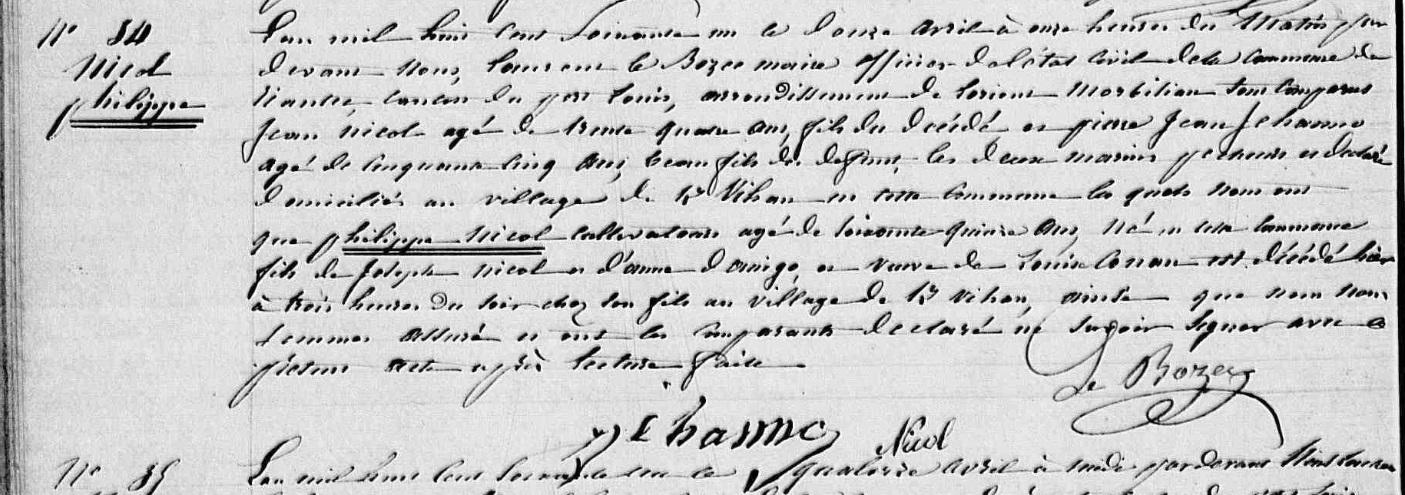 N° 34
Nicol
philippe
L'an mil huit cent soixante un le douze avril à onze heures du matin par
devant nous, Laurent le Bozec maire officier de l'état civil de la commune de
Riantec, canton du port Louis, arrondissement de Lorient Morbihan sont comparus
Jean Nicol agé de trente quatre ans, fils du décédé et pierre Jean Jehanno
agé de cinquante cinq ans, beau fils du défunt, les deux marins pecheurs et
domiciliés au village de Kr Vihan en cette commune les quels nous ont déclaré
que philippe Nicol cultivateur agé de soixante quinze ans, Né en cette commune
fils de Joseph Nicol et d'anne et veuve de Louise Conan est décédé hier
à trois heures du soir chez son fils au village de Kr Vihan, ainsi que nous nous
sommes assuré et ont les comparants déclaré ne savoir signer avec
présent acte après lecture faite.
Le Bozec
Jehanno
Nicol
N° 35
L'an mil huit cent soixante un le quatorze avril à midi par devant Nous Laurent